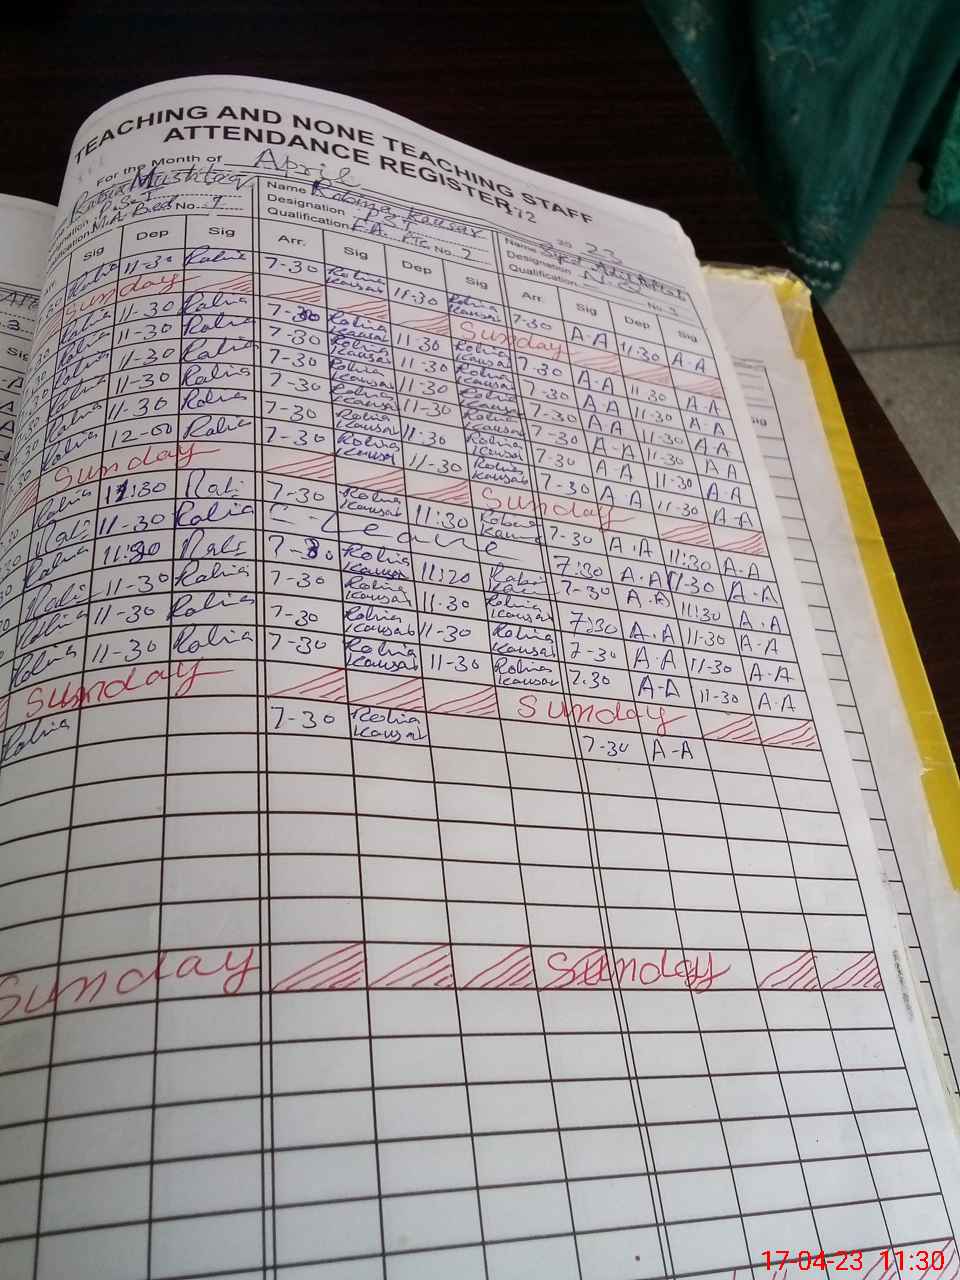 TEACHING AND NONE TEACHING STAFF
ATTENDANCE REGISTER
For the Month of April 2023
Rabia Mushtaq
M.A. Bed No. 1
Name Robina Kausar
Designation
Qualification F.A. PTC No. 2
Name Syed
Designation
Qualification No. 3
Sig Dep Sig Arr. Sig Dep Sig Arr. Sig Dep Sig
Rabia 11-30 Rabia 7-30 Robina Kausar 11-30 Robina Kausar 7-30 A-A 11.30 A-A
Sunday Sunday
Rabia 11-30 Rabia 7-30 Robina Kausar 11-30 Robina Kausar 7-30 A-A 11.30 A-A
Rabia 11-30 Rabia 7-30 Robina Kausar 11-30 Robina Kausar 7-30 A-A 11-30 A-A
Rabia 11-30 Rabia 7-30 Robina Kausar 11-30 Robina Kausar 7-30 A-A 11-30 A-A
Rabia 11-30 Rabia 7-30 Robina Kausar 11-30 Robina Kausar 7-30 A-A 11-30 A-A
Rabia 11-30 Rabia 7-30 Robina Kausar 11-30 Robina Kausar 7-30 A-A 11-30 A-A
Rabia 12-00 Rabia 7-30 Robina Kausar 11-30 Robina Kausar 7-30 A-A 11-30 A-A
Sunday Sunday
Rabia 11:30 Rabi 7-30 Robina Kausar 11:30 Robina Kausar 7-30 A.A 11:30 A-A
Rabi 11-30 Rabia C-Leave 7:30 A.A 11-30 A-A
Rabia 11:30 Rabi 7-30 Robina Kausar 11:30 Robina 7-30 A.A 11:30 A.A
Rabi 11-30 Rabia 7-30 Robina Kausar 11-30 Robina Kausar 7:30 A.A 11-30 A-A
Rabia 11-30 Rabia 7-30 Robina Kausar 11-30 Robina Kausar 7-30 A.A 11-30 A-A
Rabia 11-30 Rabia 7-30 Robina Kausar 11-30 Robina Kausar 7.30 A-A 11-30 A-A
Sunday Sunday
Rabia 7-30 Robina Kausar 7-30 A-A
Sunday Sunday
17-04-23 11:30